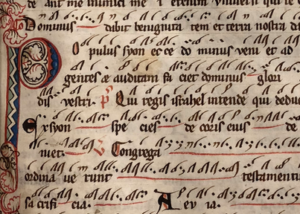 Dominus dabit benignita tem et terra nostra da
opulus syon ec ce do minus veni et ad
gentes et auditam fa ciet dominus glori
dis vestri Qui regis israhel intende qui dedu
Ex syon spe cies de coris eius de
niet Congrega
ordina ve runt testamentu
sa crifi cia A ev ia